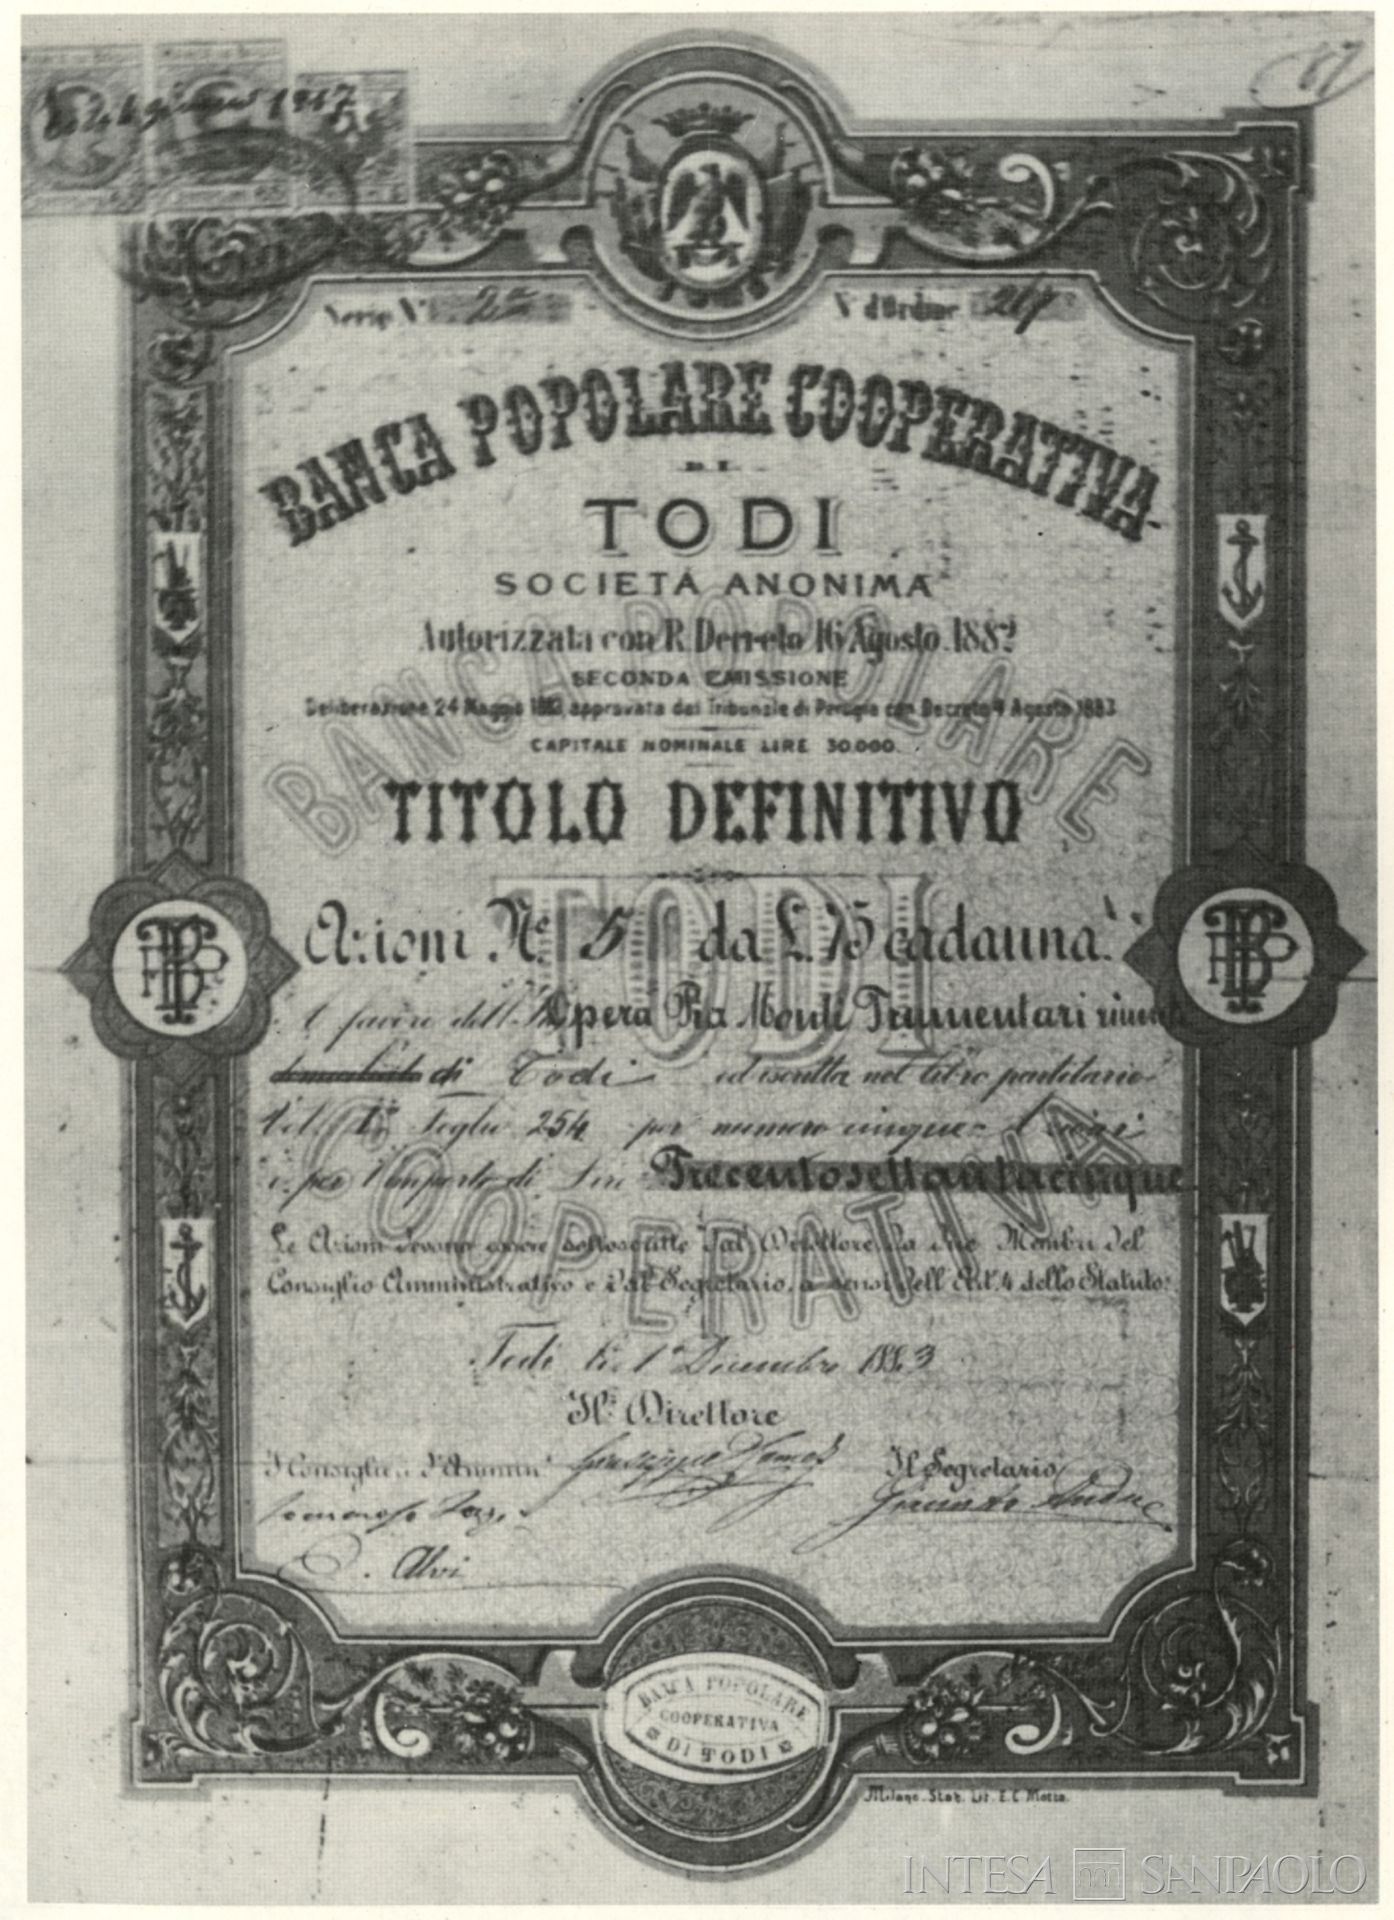 1917
Serie N° 2a
N° d'Ordine 267
BANCA POPOLARE COOPERATIVA
DI
TODI
SOCIETÀ ANONIMA
Autorizzata con R. Decreto 16 Agosto 1882
SECONDA EMISSIONE
Deliberazione 24 Maggio 1883, approvata dal Tribunale di Perugia con Decreto 4 Agosto 1883
CAPITALE NOMINALE LIRE 30.000.
TITOLO DEFINITIVO
BANCA POPOLARE
TODI
COOPERATIVA
Azioni N.° 5 da L. 75 cadauna
A favore dell' Opera Pia Monti Frumentari riuniti
di Todi ed iscritta nel libro partitario
Vol. 1° Foglio 254 per numero cinque Azioni
e per l'importo di Lire Trecentosettantacinque
Le Azioni devono essere sottoscritte dal Direttore, da due Membri del
Consiglio Amministrativo e dal Segretario, a sensi dell'Art. 4 dello Statuto.
Todi li 1° Dicembre 1883
Il Direttore
I Consiglieri d'Ammin.
Giuseppe
Il Segretario
Tommaso
Giacinto
Alvi
BANCA POPOLARE
COOPERATIVA
DI TODI
Milano. Stab. Lit. E. C. Motta.
INTESA SANPAOLO